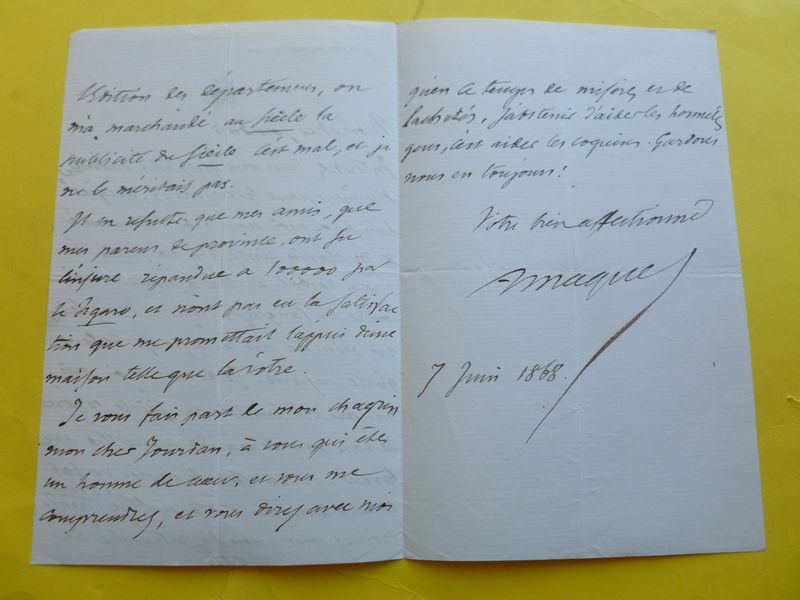 l'édition des départemens, on
m'a marchandé au Siècle la
publicité du Siècle c'est mal, et je
ne le méritais pas.
Il en résulte que mes amis, que
mes parens de province, ont su
l'injure répandue à 100,000 par
le Figaro, et n'ont pas eu la satisfac
tion que me promettait l'appui d'une
maison telle que la vôtre.
Je vous fais part de mon chagrin
mon cher Jourdan, à vous qui êtes
un homme de cœur, et vous me
comprendrez, et vous direz avec moi
qu'en ce temps de misères et de
lachetés, s'abstenir d'aider les honnêtes
gens, c'est aider les coquins. Gardons
nous en toujours!
Votre bien affectionné
AMaquet
7 Juin 1868.